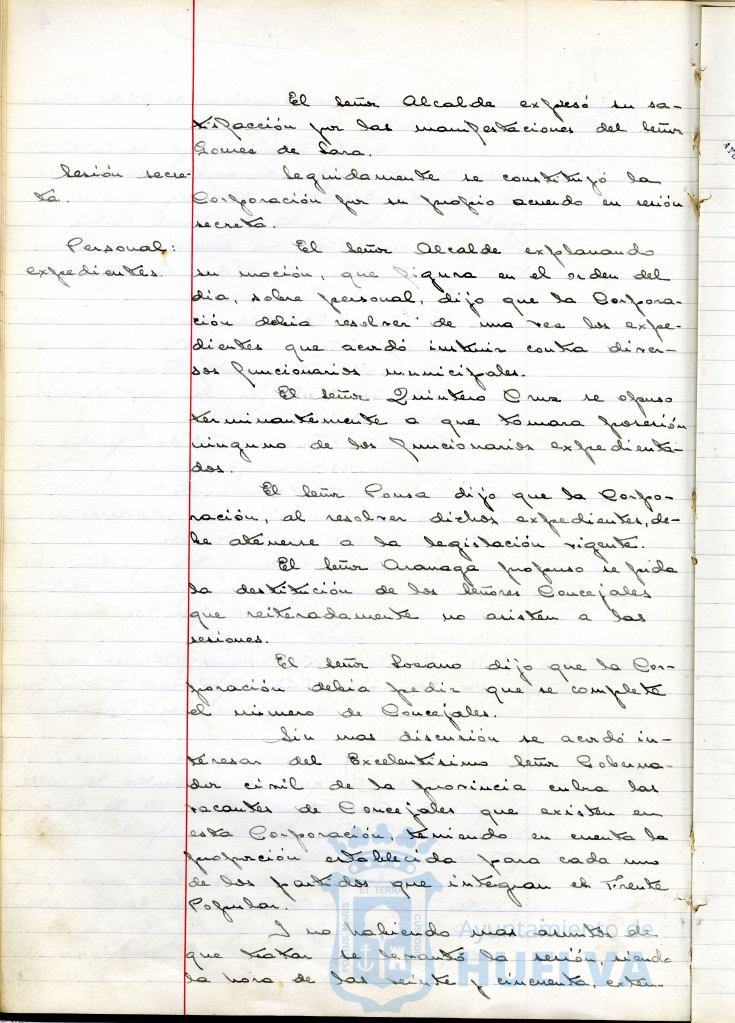 El Señor Alcalde expresó su sa-
tisfacción por las manifestaciones del Señor
Gomez de Lara.
Sesión secre-
ta.
Seguidamente se constituyó la
Corporación por su propio acuerdo en sesión
secreta.
Personal:
expedientes.
El Señor Alcalde explanando
su moción, que figura en el orden del
dia, sobre personal, dijo que la Corpora-
ción debia resolver de una vez los expe-
dientes que acordó instruir contra diver-
sos funcionarios municipales.
El Señor Quintero Cruz se opuso
terminantemente a que tomara posesión
ninguno de los funcionarios expedienta-
dos.
El Señor Pousa dijo que la Corpo-
ración, al resolver dichos expedientes, de-
be atenerse a la legislación vigente.
El Señor Aranaga propuso se pida
la destitución de los Señores Concejales
que reiteradamente no asisten a las
sesiones.
El Señor Lozano dijo que la Cor-
poración debia pedir que se complete
el número de Concejales.
Sin mas discusión se acordó in-
teresar del Excelentísimo Señor Goberna-
dor civil de la provincia cubra las
vacantes de Concejales que existen en
esta Corporación, teniendo en cuenta la
proporción establecida para cada uno
de los partidos que integran el Frente
Popular.
Y no habiendo mas asuntos de
que tratar se levantó la sesión, siendo
la hora de las veinte y cincuenta, exten-
PORTUS MARIS ET TERRAE CUSTODIA
Ayuntamiento de
HUELVA